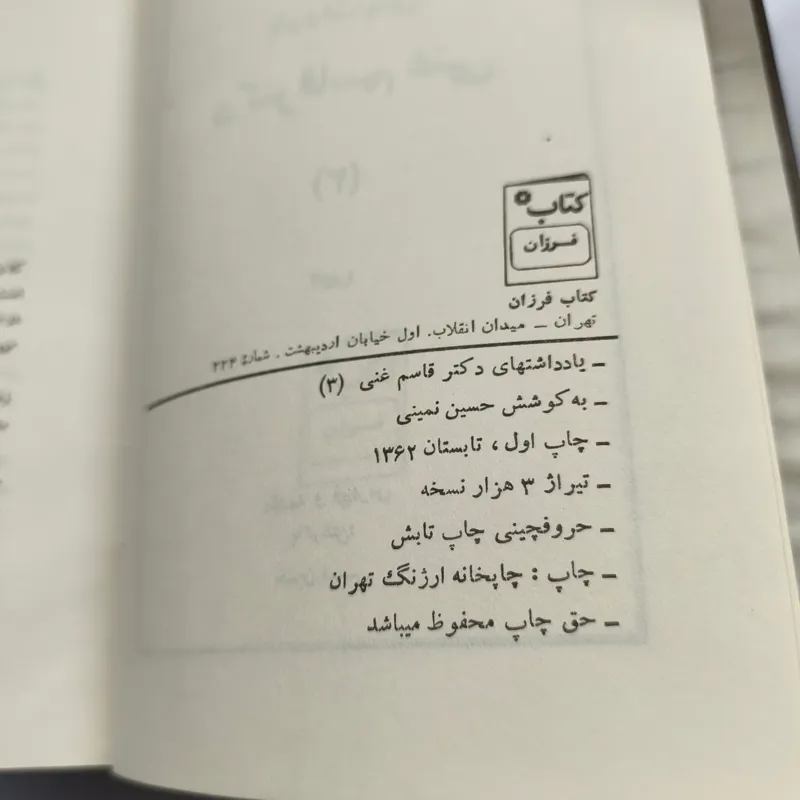 کتاب
فرزان
کتاب فرزان
تهران – میدان انقلاب. اول خیابان اردیبهشت . شمارهٔ ۲۲۴
– یادداشتهای دکتر قاسم غنی (۳)
– به‌کوشش حسین نمینی
– چاپ اول، تابستان ۱۳۶۲
– تیراژ ۳ هزار نسخه
– حروفچینی چاپ تابش
– چاپ : چاپخانه ارژنگ تهران
– حق چاپ محفوظ میباشد